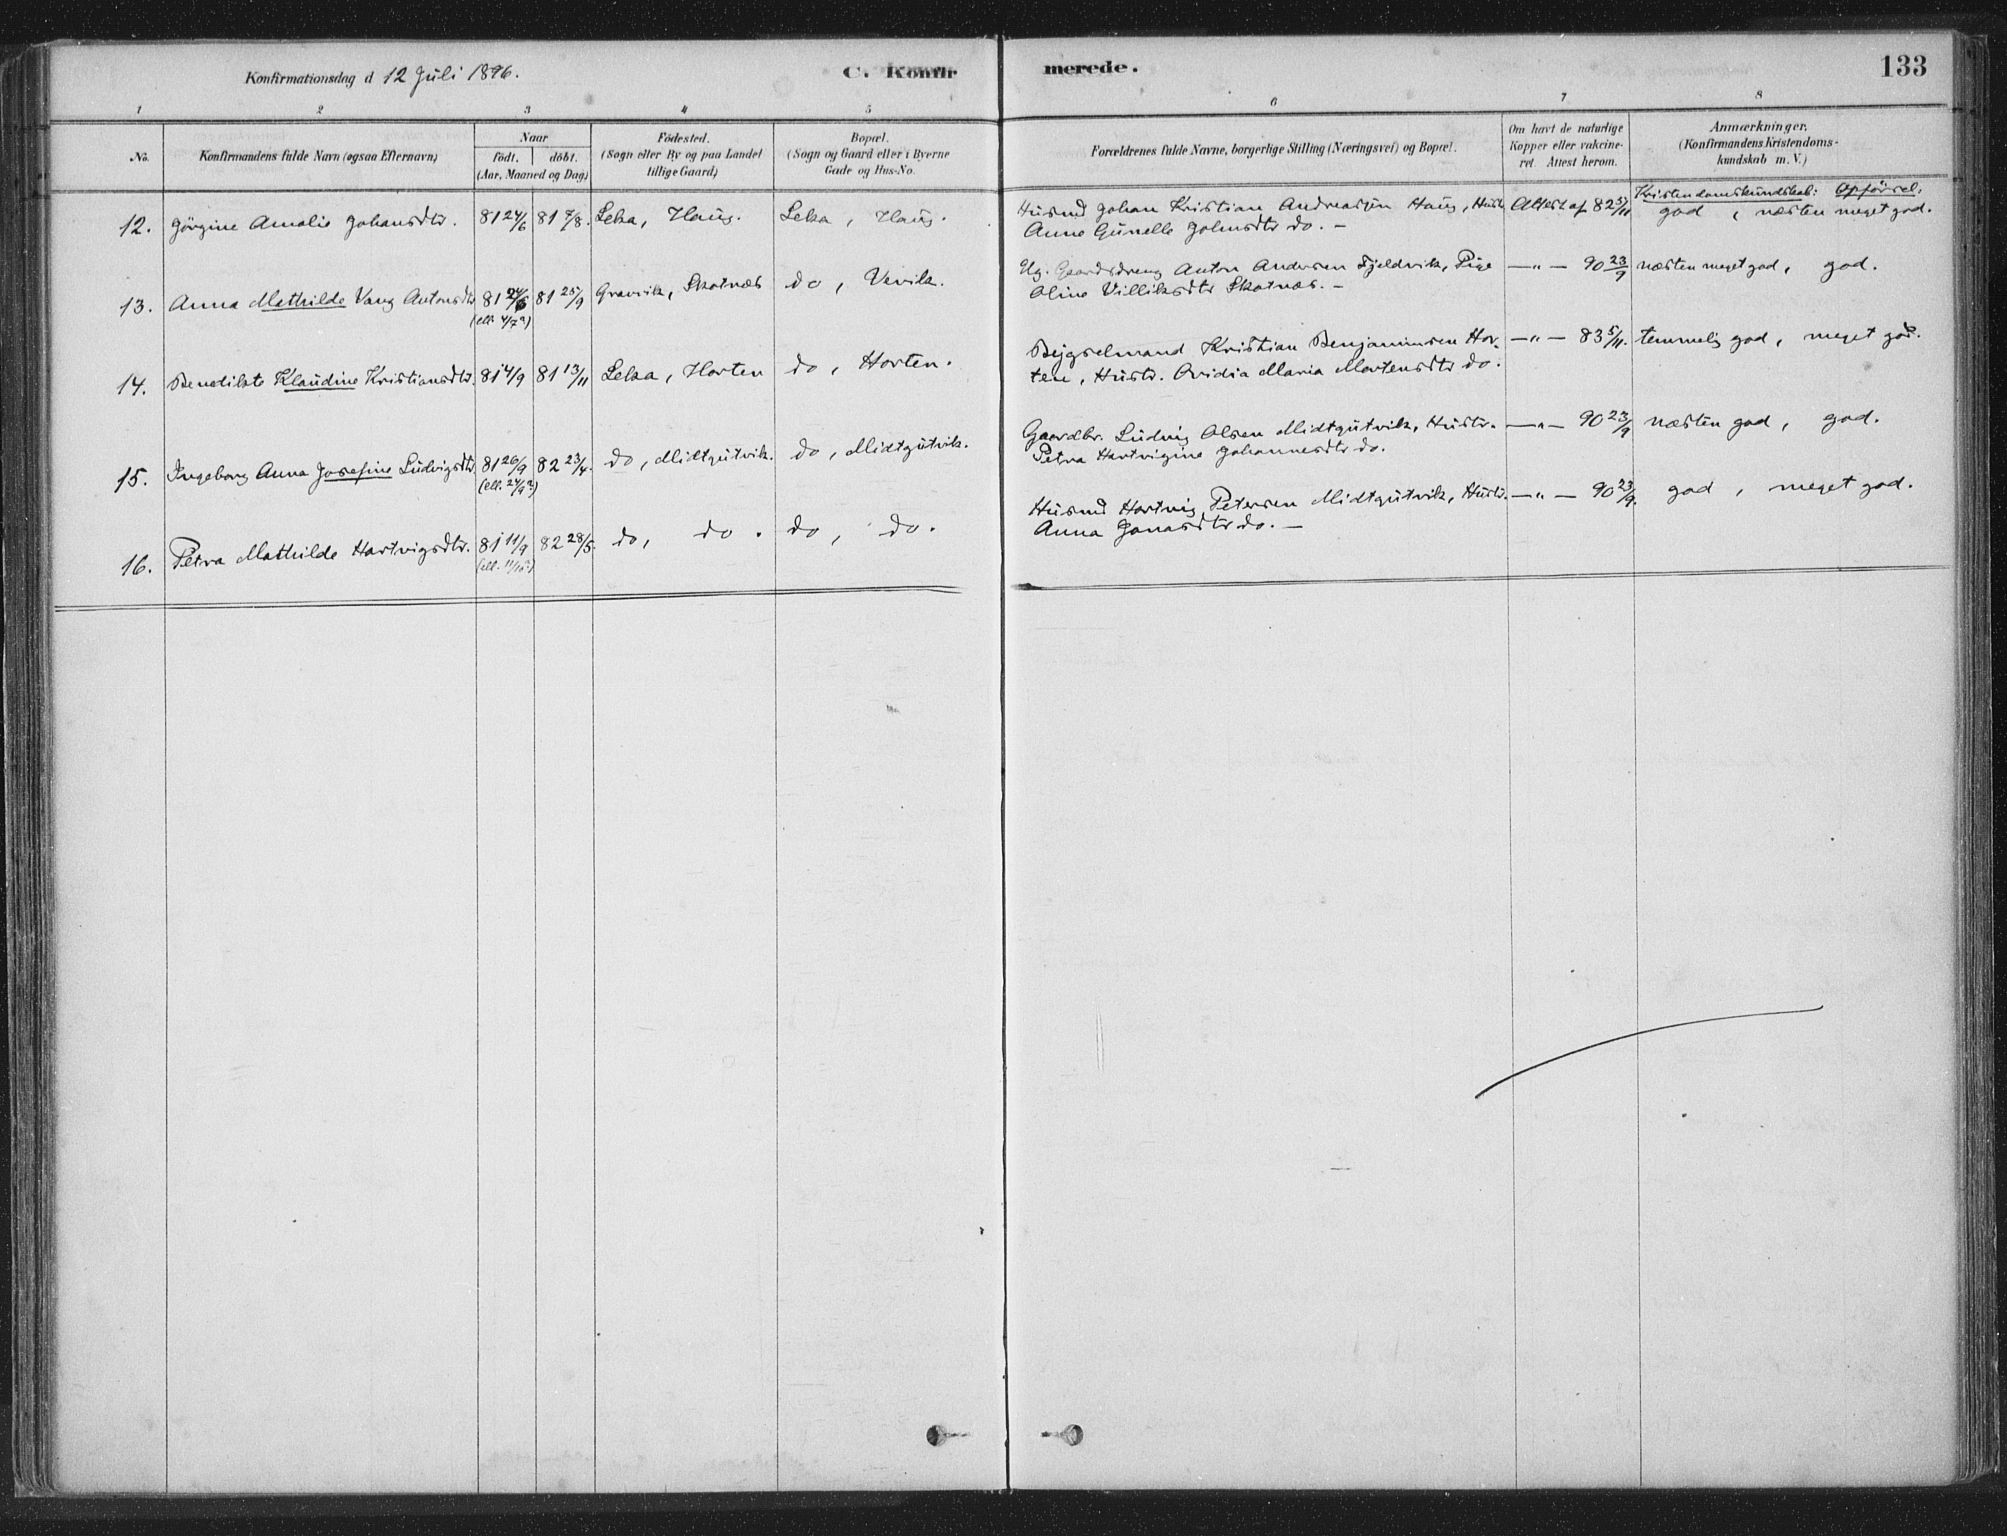 Konfirmationsdag d 12 Juli 1896.
C. Konfirmerede.
133
1 2 3 4 5 6 7 8
No.
Konfirmandens fulde Navn (ogsaa Efternavn)
Naar
födt. döbt.
(Aar, Maaned og Dag)
Födested.
(Sogn eller By og paa Landet
tillige Gaard)
Bopæl.
(Sogn og Gaard eller i Byerne
Gade og Hus-No.
Forældrenes fulde Navne, borgerlige Stilling (Næringsvei) og Bopæl.
Om havt de naturlige
Kopper eller vakcine-
ret. Attest herom.
Anmærkninger.
(Konfirmandens Kristendoms-
kundskab m. V.)
Kristendomskundskab: Opførsel:
12. Jörgine Amalie Johansdtr. 81 24/6 81 7/8. Leka, Haug. Leka, Haug. Husmd Johan Kristian Andreassen Haug, Hustr. Attest af 82 5/11 god, næsten meget god.
Anne Gunelle Johnsdtr do. —
13. Anna Mathilde Vang Antonsdtr 81 24/6 81 25/9 Gravvik, Skotnæs do, Vevik. Ug. Gaardsdreng Anton Andersen Fjeldvik, Pige —"— 90 23/9 næsten meget god, god.
(ell. 4/7?) Oline Villiksdtr Skotnæs. —
14. Benedikte Klaudine Kristiansdtr. 81 4/9 81 13/11 Leka, Horten do, Horten. Bygselmand Kristian Benjaminsen Hor- —"— 83 5/11. temmelig god, meget god.
ten, Hustr. Ovidia Maria Mortensdtr do.
15. Ingeborg Anna Josefine Ludvigsdtr 81 26/9 82 23/4. do, Midtgutvik. do, Midtgutvik. Gaardbr. Ludvig Olsen Midtgutvik, Hustr. —"— 90 23/9 næsten god, god.
(ell. 24/9?) Petra Hartvigine Johannesdtr do.
16. Petra Mathilde Hartvigsdtr. 81 11/9 82 28/5. do, do. do, do. Husmd Hartvig Petersen Midtgutvik, Hustr. —"— 90 23/9. god, meget god.
(ell. 11/10?) Anna Jonasdtr do. —